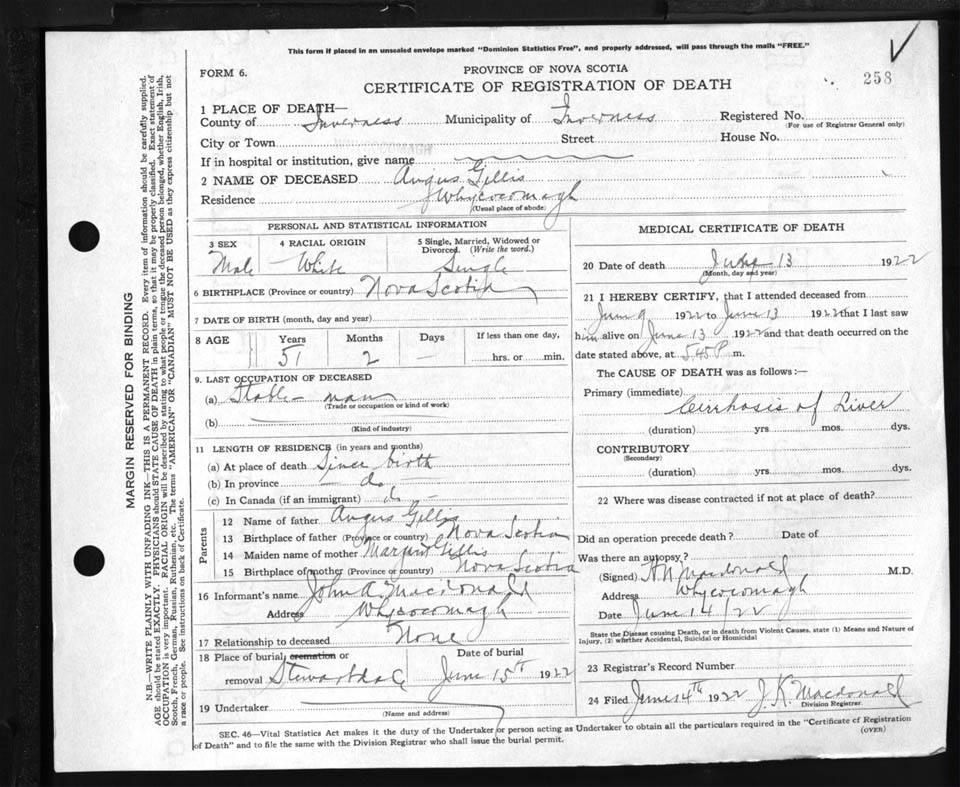 This form if placed in an unsealed envelope marked "Dominion Statistics Free", and properly addressed, will pass through the mails "FREE."
FORM 6.
PROVINCE OF NOVA SCOTIA
258
CERTIFICATE OF REGISTRATION OF DEATH
1 PLACE OF DEATH—
County of Inverness Municipality of Inverness Registered No.
(For use of Registrar General only)
City or Town WHYCOCOMAGH Street House No.
If in hospital or institution, give name
2 NAME OF DECEASED Angus Gillis
Residence Whycocomagh
(Usual place of abode)
PERSONAL AND STATISTICAL INFORMATION
3 SEX 4 RACIAL ORIGIN 5 Single, Married, Widowed or
Divorced. (Write the word.)
Male White Single
6 BIRTHPLACE (Province or country) Nova Scotia
7 DATE OF BIRTH (month, day and year)
8 AGE Years Months Days If less than one day,
51 2 — hrs. or min.
9. LAST OCCUPATION OF DECEASED
(a) Stable-man
(Trade or occupation or kind of work)
(b)
(Kind of industry)
11 LENGTH OF RESIDENCE (in years and months)
(a) At place of death Since birth
(b) In province — do —
(c) In Canada (if an immigrant) do —
Parents
12 Name of father Angus Gillis
13 Birthplace of father (Province or country) Nova Scotia
14 Maiden name of mother Gillis
15 Birthplace of mother (Province or country) Nova Scotia
16 Informant's name John A. Macdonald
Address Whycocomagh
17 Relationship to deceased None
18 Place of burial cremation or Date of burial
removal Stewartdale June 15th 1922
19 Undertaker
(Name and address)
MEDICAL CERTIFICATE OF DEATH
20 Date of death June 13 1922
(Month, day and year)
21 I HEREBY CERTIFY, that I attended deceased from
June 9 1922 to June 13 1922 that I last saw
him alive on June 13 1922 and that death occurred on the
date stated above, at 5.45 P m.
The CAUSE OF DEATH was as follows:—
Primary (immediate)
Cirrhosis of Liver
(duration) yrs. mos. dys.
CONTRIBUTORY
(Secondary)
(duration) yrs. mos. dys.
22 Where was disease contracted if not at place of death?
Did an operation precede death? Date of
Was there an autopsy?
(Signed) Macdonald M.D.
Address Whycocomagh
Date June 14/22
State the Disease causing Death, or in death from Violent Causes, state (1) Means and Nature of
Injury, (2) whether Accidental, Suicidal or Homicidal
23 Registrar's Record Number
24 Filed June 14th 1922 J. K. Macdonald
Division Registrar.
SEC. 46—Vital Statistics Act makes it the duty of the Undertaker or person acting as Undertaker to obtain all the particulars required in the "Certificate of Registration
of Death" and to file the same with the Division Registrar who shall issue the burial permit.
(OVER)
MARGIN RESERVED FOR BINDING
N.B.—WRITE PLAINLY WITH UNFADING INK—THIS IS A PERMANENT RECORD. Every item of information should be carefully supplied.
AGE should be stated EXACTLY. PHYSICIANS should STATE CAUSE OF DEATH in plain terms, so that it may be properly classified. Exact statement of
OCCUPATION is very important. RACIAL ORIGIN will be described by stating to what people or tongue the deceased person belonged, whether English, Irish,
Scotch, French, German, Russian, Ruthenian, etc. The terms "AMERICAN" or "CANADIAN" MUST NOT BE USED as they express citizenship but not
a race or people. See instructions on back of Certificate.